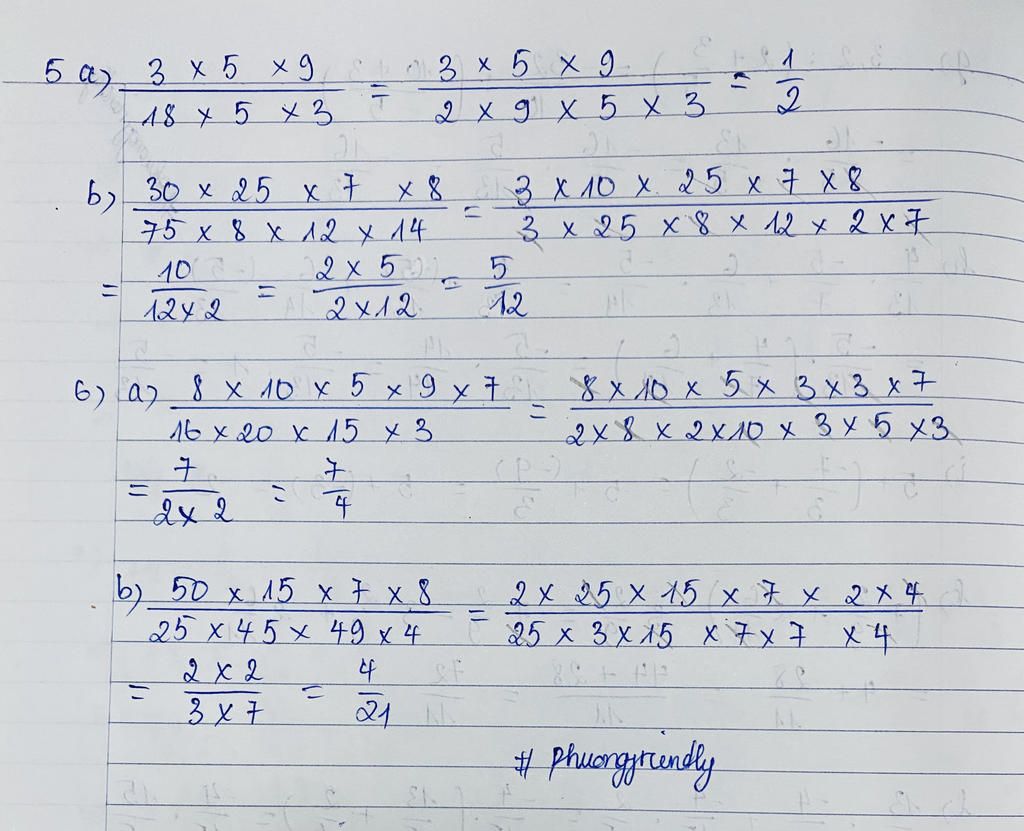 5 a) (3 × 5 × 9)/(18 × 5 × 3) = (3 × 5 × 9)/(2 × 9 × 5 × 3) = 1/2
b) (30 × 25 × 7 × 8)/(75 × 8 × 12 × 14) = (3 × 10 × 25 × 7 × 8)/(3 × 25 × 8 × 12 × 2 × 7)
= 10/(12 × 2) = (2 × 5)/(2 × 12) = 5/12
6) a) (8 × 10 × 5 × 9 × 7)/(16 × 20 × 15 × 3) = (8 × 10 × 5 × 3 × 3 × 7)/(2 × 8 × 2 × 10 × 3 × 5 × 3)
= 7/(2 × 2) = 7/4
b) (50 × 15 × 7 × 8)/(25 × 45 × 49 × 4) = (2 × 25 × 15 × 7 × 2 × 4)/(25 × 3 × 15 × 7 × 7 × 4)
= (2 × 2)/(3 × 7) = 4/21
# phuongfriendly